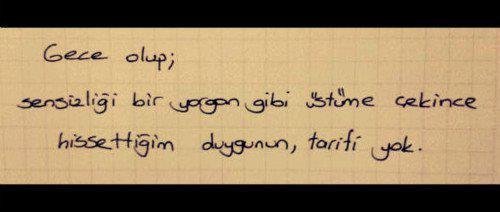 Gece olup;
sensizliği bir yorgan gibi üstüme çekince
hissettiğim duygunun, tarifi yok.